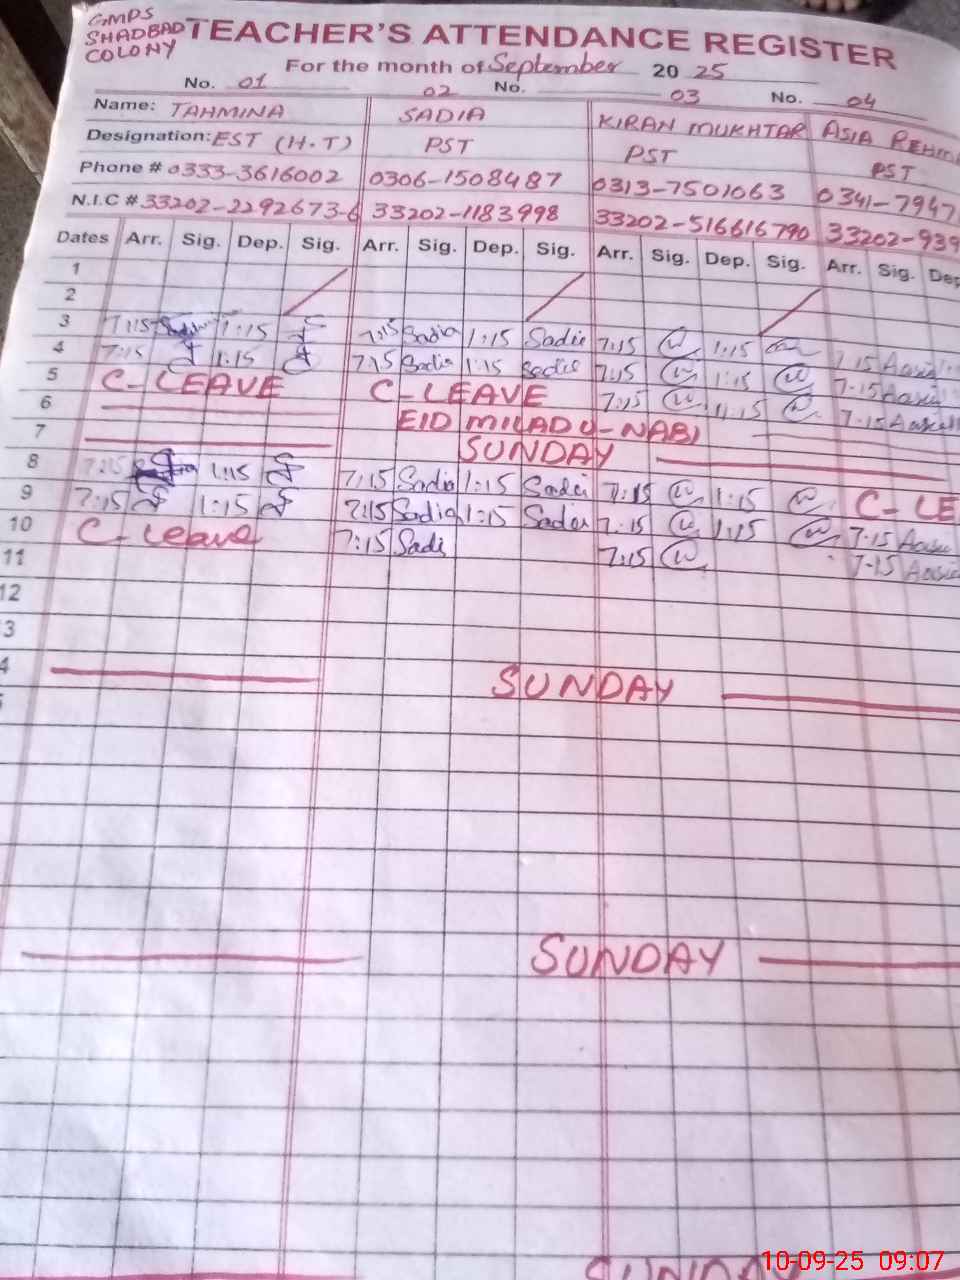 GMPS
SHADBAD
COLONY
TEACHER'S ATTENDANCE REGISTER
For the month of September 2025
No. 01 02 No. 03 No. 04
Name: TAHMINA SADIA KIRAN MUKHTAR ASIA REHM
Designation: EST (H.T) PST PST PST
Phone # 0333-3616002 0306-1508487 0313-7501063 0341-7947
N.I.C # 33202-2292673-6 33202-1183998 33202-516616790 33202-939
Dates Arr. Sig. Dep. Sig. Arr. Sig. Dep. Sig. Arr. Sig. Dep. Sig. Arr. Sig. Dep
1
2
3 7:15 1:15 7:15 Sadia 1:15 Sadia 7:15 1:15 7:15
4 7:15 1:15 7:15 Sadia 1:15 Sadia 7:15 1:15 7-15
5 C-LEAVE C-LEAVE 7:15 1:15 7-15
6 EID MILAD U-NABI
7 SUNDAY
8 7:15 1:15 7:15 Sadia 1:15 Sadia 7:15 1:15 C-LE
9 7:15 1:15 7:15 Sadia 1:15 Sadia 7:15 1:15 7-15
10 C-Leave 7:15 Sadi 7:15 7-15
11
12
3
4 SUNDAY
SUNDAY
SUNDA
10-09-25 09:07